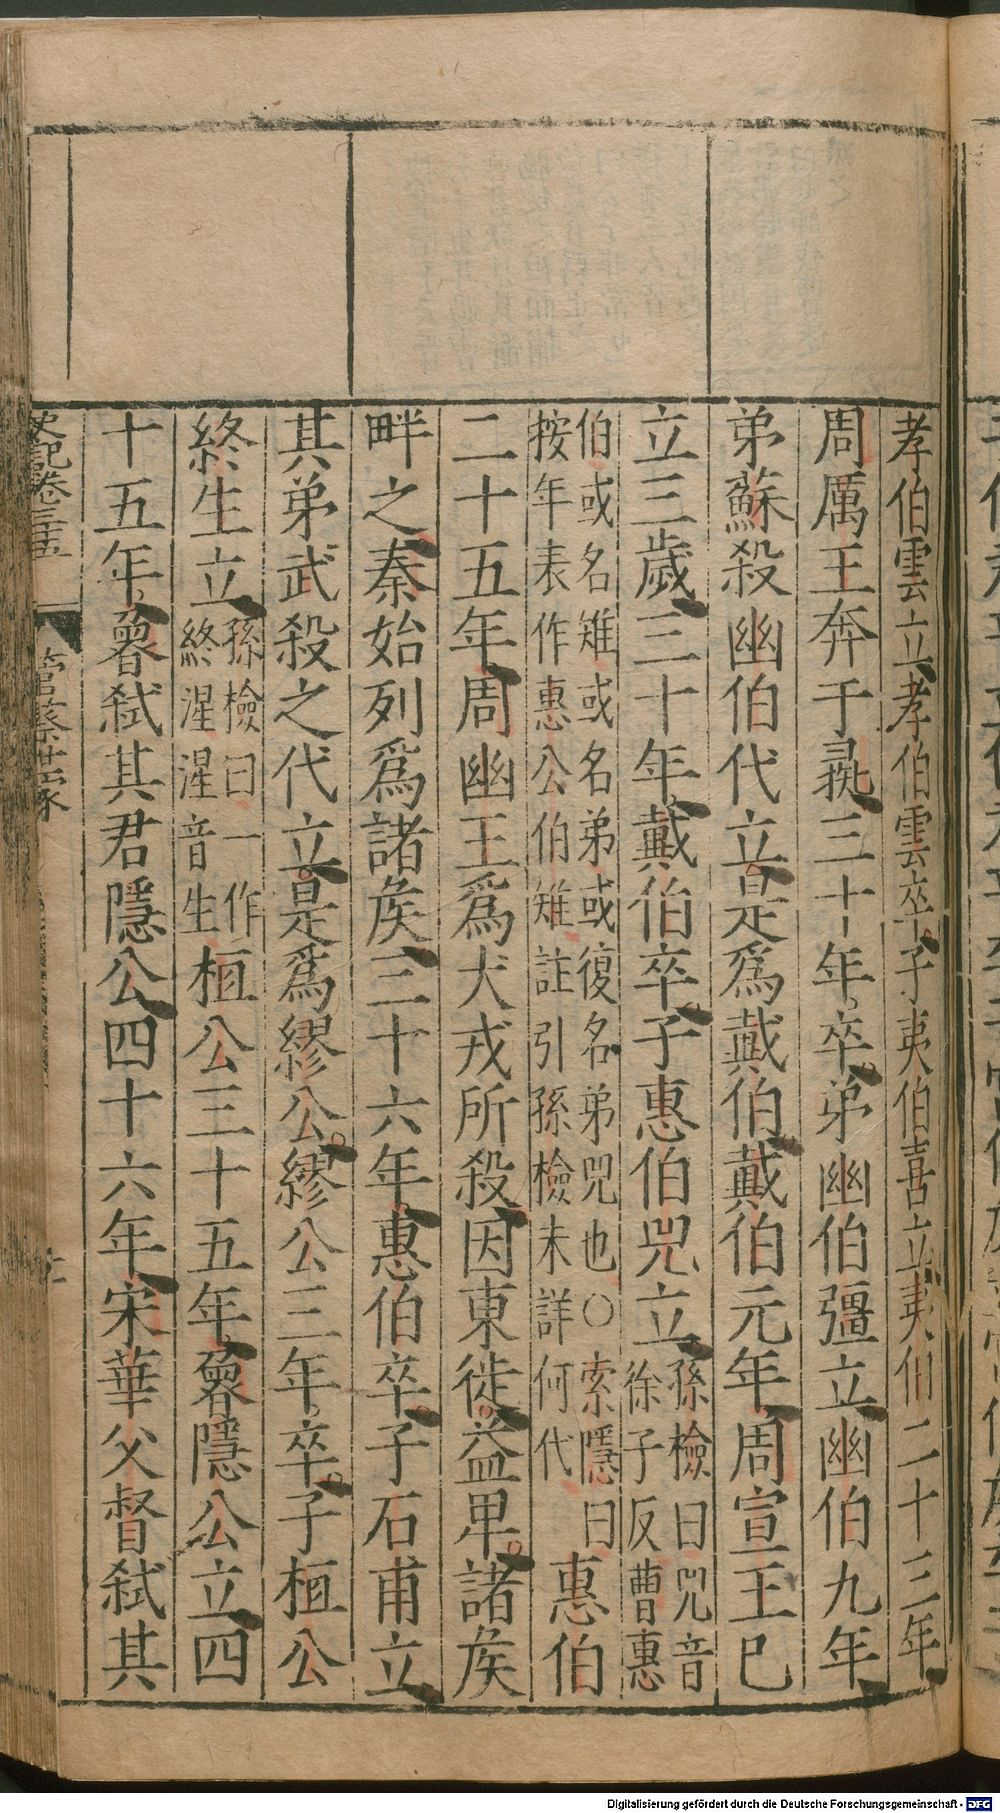 孝伯雲立孝伯雲卒子夷伯喜立夷伯二十三年
周厲王奔于彘三十年卒弟幽伯彊立幽伯九年
弟蘇殺幽伯代立是爲戴伯戴伯元年周宣王已
立三歲三十年戴伯卒子惠伯兕立孫檢曰兕音
徐子反曹惠
伯或名雉或名弟或復名弟兕也○索隱曰
按年表作惠公伯雉註引孫檢未詳何代
惠伯
二十五年周幽王爲犬戎所殺因東徙益卑諸矦
畔之秦始列爲諸矦三十六年惠伯卒子石甫立
其弟武殺之代立是爲繆公繆公三年卒子桓公
終生立孫檢曰一作
終湦湦音生
桓公三十五年魯隱公立四
十五年魯弒其君隱公四十六年宋華父督弒其
史記卷三十五 管蔡世家
Digitalisierung gefördert durch die Deutsche Forschungsgemeinschaft - DFG